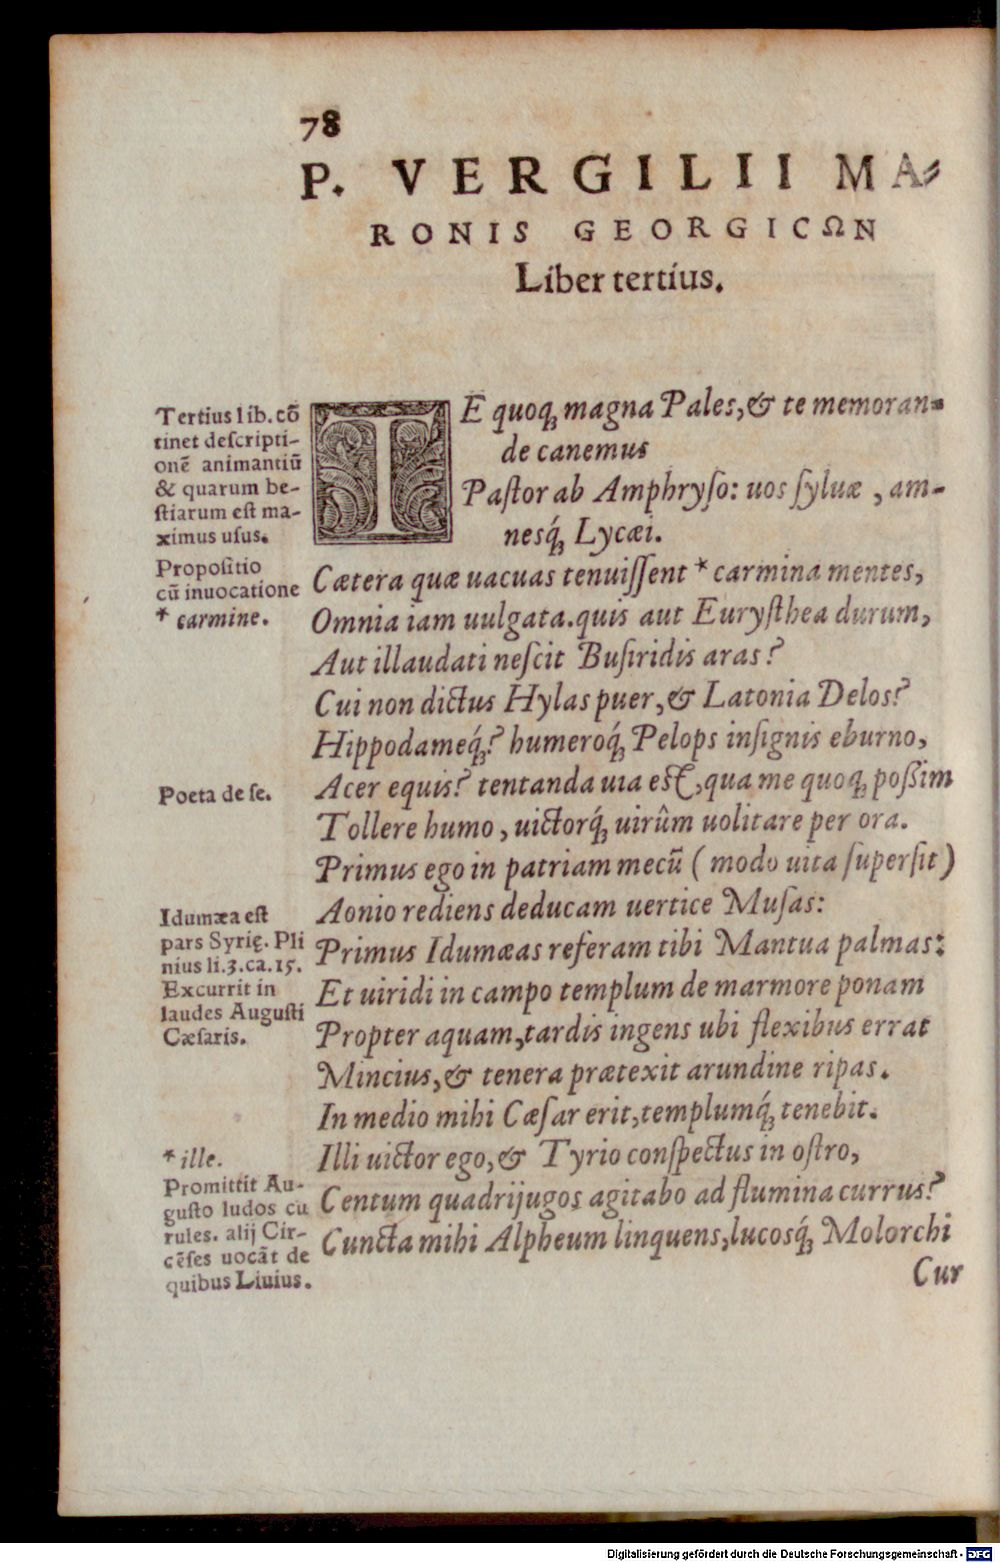 78
P. VERGILII MA-
RONIS GEORGICΩN
Liber tertius.
Tertius lib. cō
tinet descripti-
onē animantiū
& quarum be-
stiarum est ma-
ximus usus.
Propositio
cū inuocatione
* carmine.
TE quoq; magna Pales, & te memoran-
de canemus
Pastor ab Amphryso: uos syluæ, am-
nesq́; Lycæi.
Cætera quæ uacuas tenuissent * carmina mentes,
Omnia iam uulgata. quis aut Eurysthea durum,
Aut illaudati nescit Busiridis aras?
Cui non dictus Hylas puer, & Latonia Delos?
Hippodameq́;? humeroq́; Pelops insignis eburno,
Poeta de se.
Acer equis? tentanda uia est, qua me quoq; poßim
Tollere humo, uictorq́; uirûm uolitare per ora.
Primus ego in patriam mecū (modo uita supersit)
Aonio rediens deducam uertice Musas:
Idumæa est
pars Syrię. Pli
nius li.3.ca.15.
Excurrit in
laudes Augusti
Cæsaris.
Primus Idumæas referam tibi Mantua palmas:
Et uiridi in campo templum de marmore ponam
Propter aquam, tardis ingens ubi flexibus errat
Mincius, & tenera prætexit arundine ripas.
In medio mihi Cæsar erit, templumq́; tenebit.
* ille.
Promittit Au-
gusto ludos cu
rules. alij Cir-
cēses uocāt de
quibus Liuius.
Illi uictor ego, & Tyrio conspectus in ostro,
Centum quadrijugos agitabo ad flumina currus?
Cuncta mihi Alpheum linquens, lucosq́; Molorchi
Cur
Digitalisierung gefördert durch die Deutsche Forschungsgemeinschaft - DFG